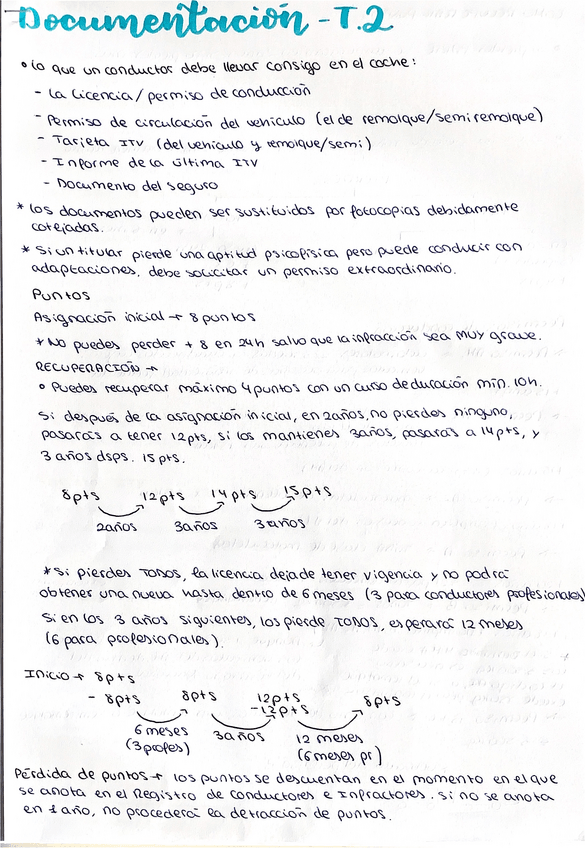 Documentación - T.2
• Lo que un conductor debe llevar consigo en el coche:
- La licencia/permiso de conducción
- Permiso de circulación del vehículo (el de remolque/semiremolque)
- Tarjeta ITV (del vehículo y remolque/semi)
- Informe de la última ITV
- Documento del seguro
* Los documentos pueden ser sustituidos por fotocopias debidamente
cotejadas.
* Si un titular pierde una aptitud psicofísica pero puede conducir con
adaptaciones, debe solicitar un permiso extraordinario.
Puntos
Asignación inicial → 8 puntos
* No puedes perder + 8 en 24h salvo que la infracción sea MUY grave.
RECUPERACIÓN →
• Puedes recuperar máximo 4 puntos con un curso de duración mín. 10h.
Si después de la asignación inicial, en 2 años, no pierdes ninguno,
pasarás a tener 12pts, si los mantienes 3 años, pasarás a 14 pts, y
3 años dsps. 15 pts.
8pts 12pts 14 pts 15 pts
2 años 3 años 3 años
* Si pierdes TODOS, la licencia deja de tener vigencia y no podrá
obtener una nueva hasta dentro de 6 meses (3 para conductores profesionales)
Si en los 3 años siguientes, los pierde TODOS, esperará 12 meses
(6 para profesionales).
Inicio → 8pts
- 8pts 8pts 12pts 8pts
-12pts
6 meses 3 años 12 meses
(3 profes) (6 meses pr)
Pérdida de puntos → los puntos se descuentan en el momento en el que
se anota en el Registro de conductores e Infractores. Si no se anota
en 1 año, no procederá la detracción de puntos.